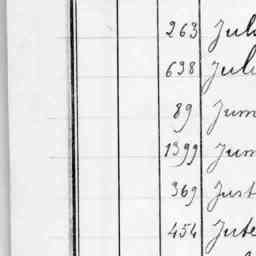 263 Jul
638 Jul
89 Jum
1399 Jum
369 Just
454 Jute